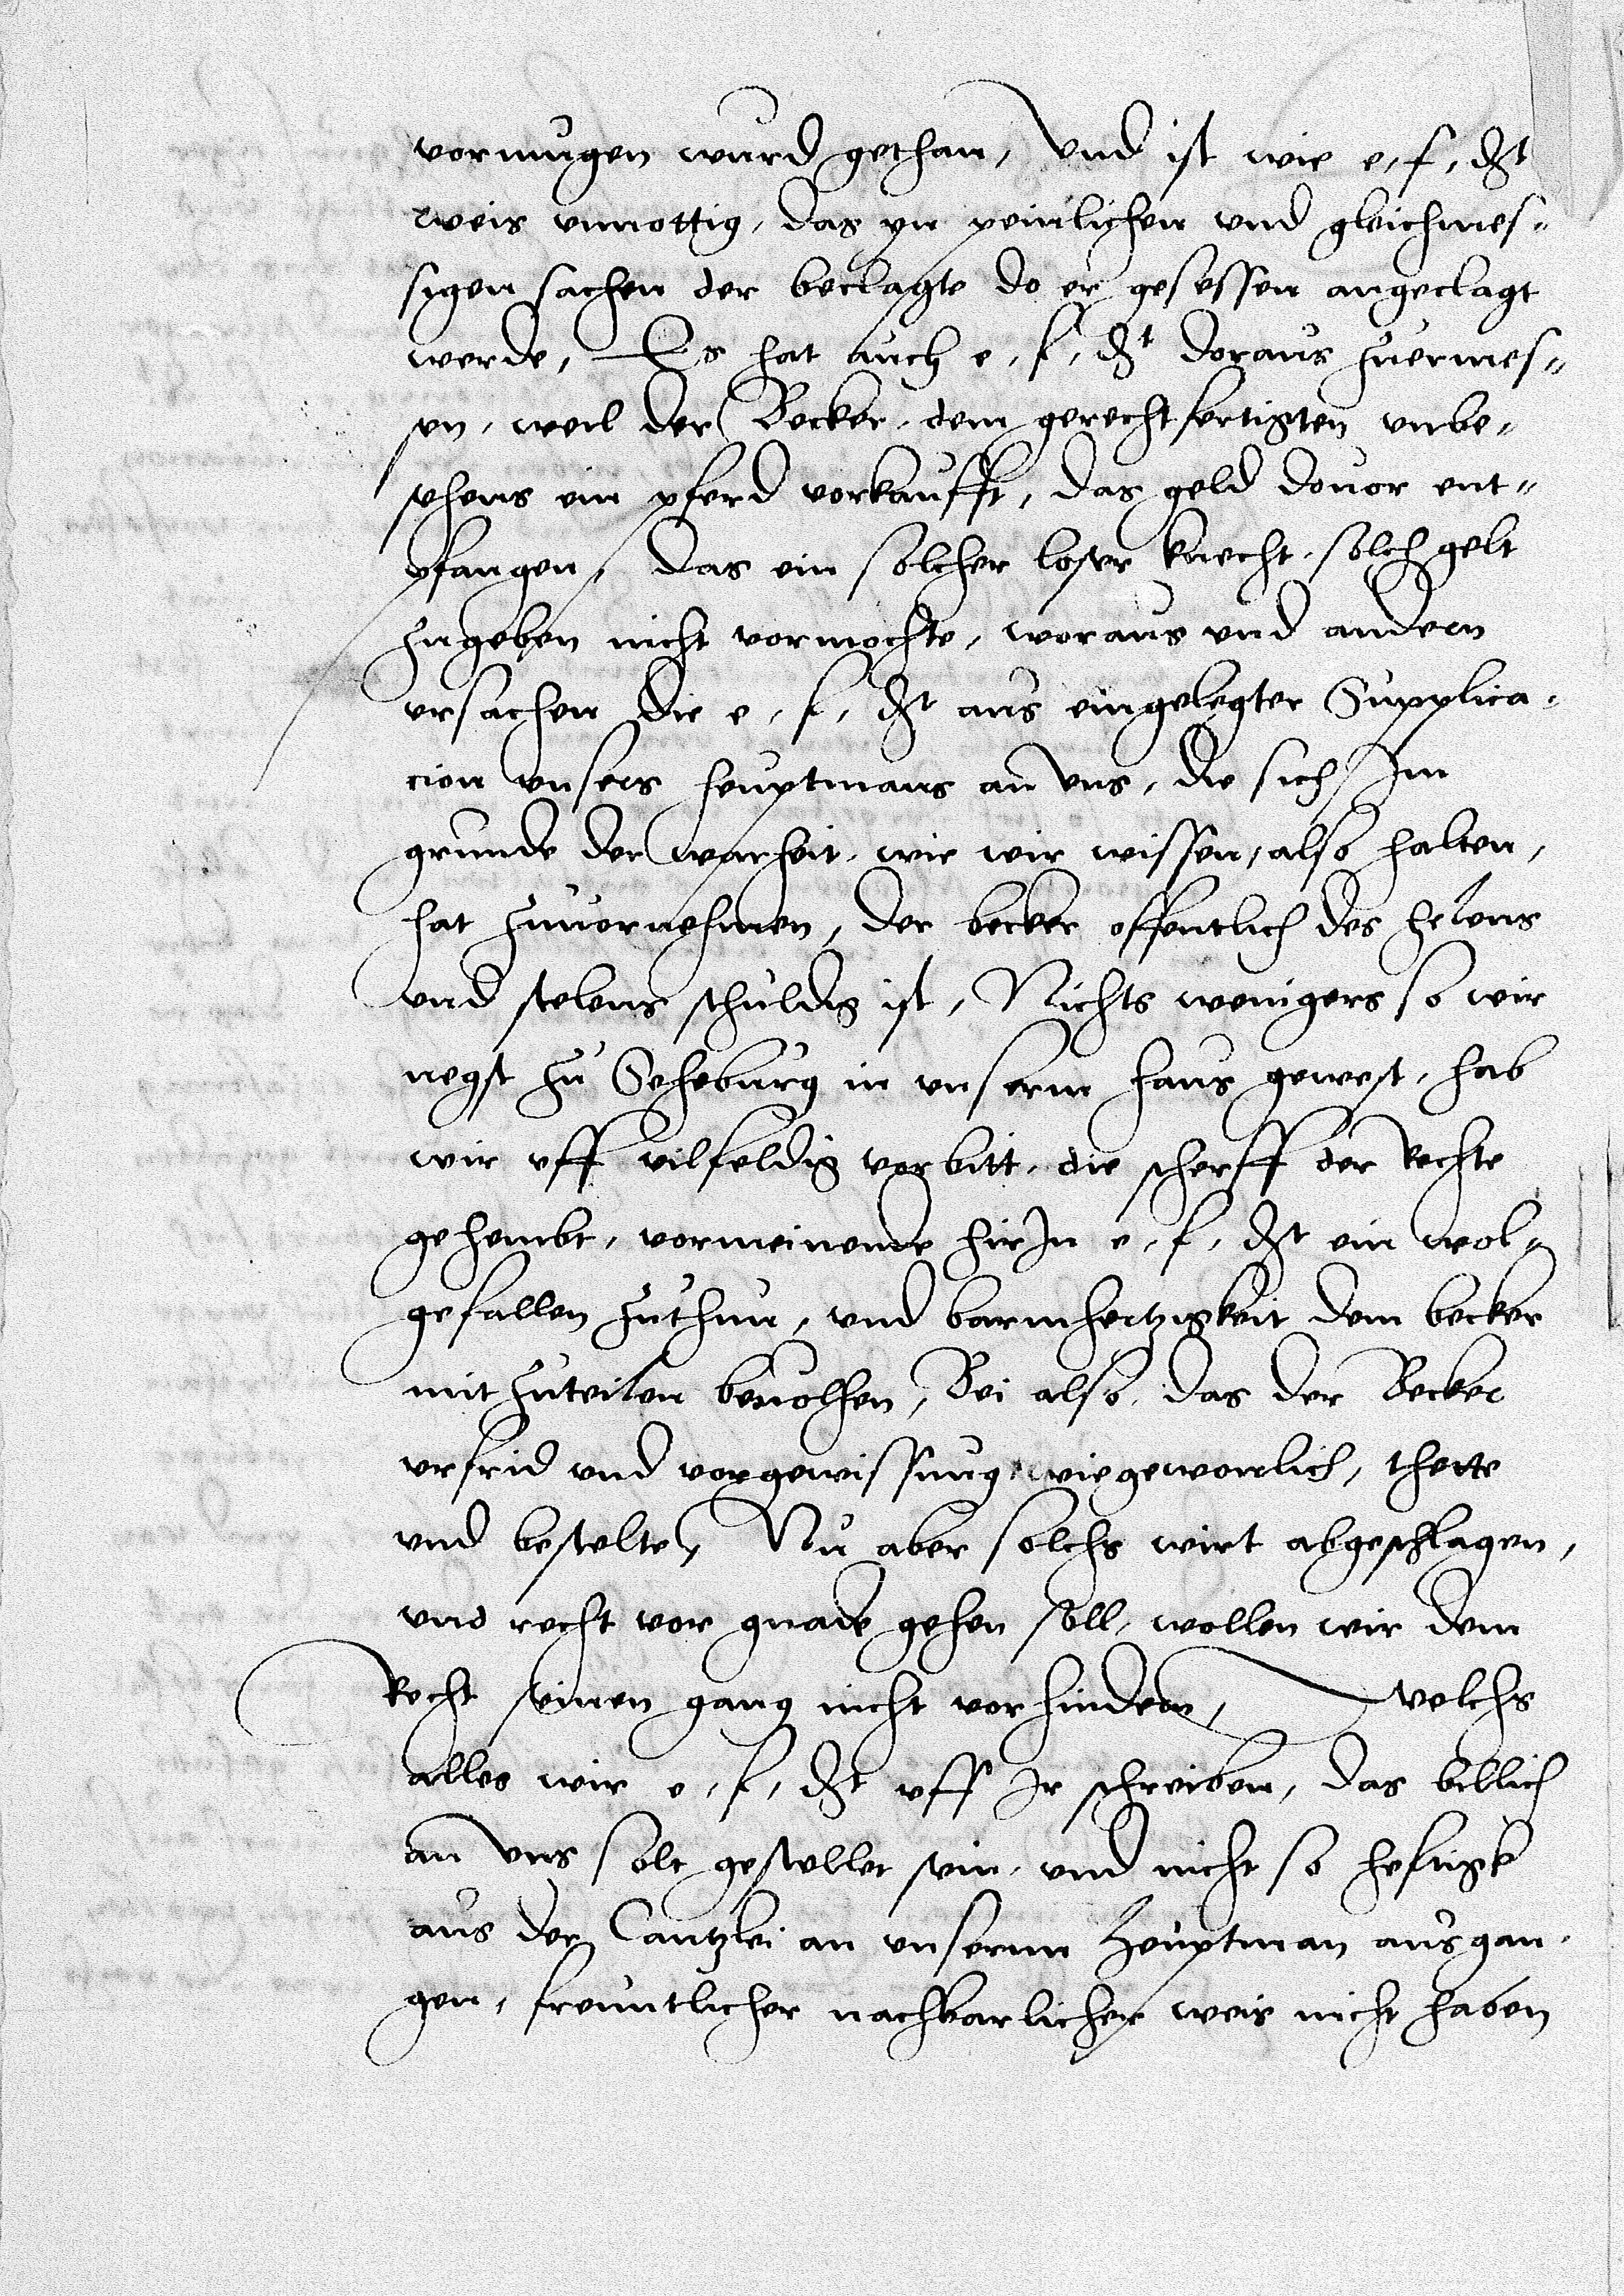 vormugen wurd gethan, Vnd ist wie e, f, dt
weis vnnottig, das yn peinlichen vnd gleichmes„
sigen sachen der beclagte do er gesessen angeclagt
werde, Es hat auch e, f, dt doraus zuermes„
sen, weil der Becker, dem gerechtfertigten vnbe„
sehens ein pferd vorkaufft, das geld douor ent„
pfangen, das ein solcher loser knecht, solch gelt
zugeben nicht vormochte, woraus vnd andern
vrsachen die e, f, dt aus eingelegter Supplica„
cion vnsers heuptmans an vns, die sich Im
grunde der warheit, wie wir wissen, also halten,
hat zuuornehmen, der becker offentlich des helens
vnd stelens schuldig ist, Nichts wenigers so wir
negst zu Seheburg in vnserm haus gewest, hab
wir vff vilfeldig vorbitt, die scherff der Rechte
gehembt, vormeinende hirIn e, f, dt ein wol„
gefallen zuthun, vnd barmhertzigkeit dem becker
mit zuteilen beuolhen, Bei also, das der Becker
vrfrid vnd vorgewissung wie gewonlich, thette
vnd bestelte, Nu aber solchs wirt abgeschlagen,
vnd recht vor gnade gehen soll, wollen wir dem
Recht seinen gang nicht vorhindern, welchs
alles wir e, f, dt vff Ir schreiben, das billich
an vns solt gestellet sein, vnd nicht so heftigk
aus der Cantzlei an vnsernn Heuptman ausgan„
gen, freuntlicher nachbarlicher weis nicht haben